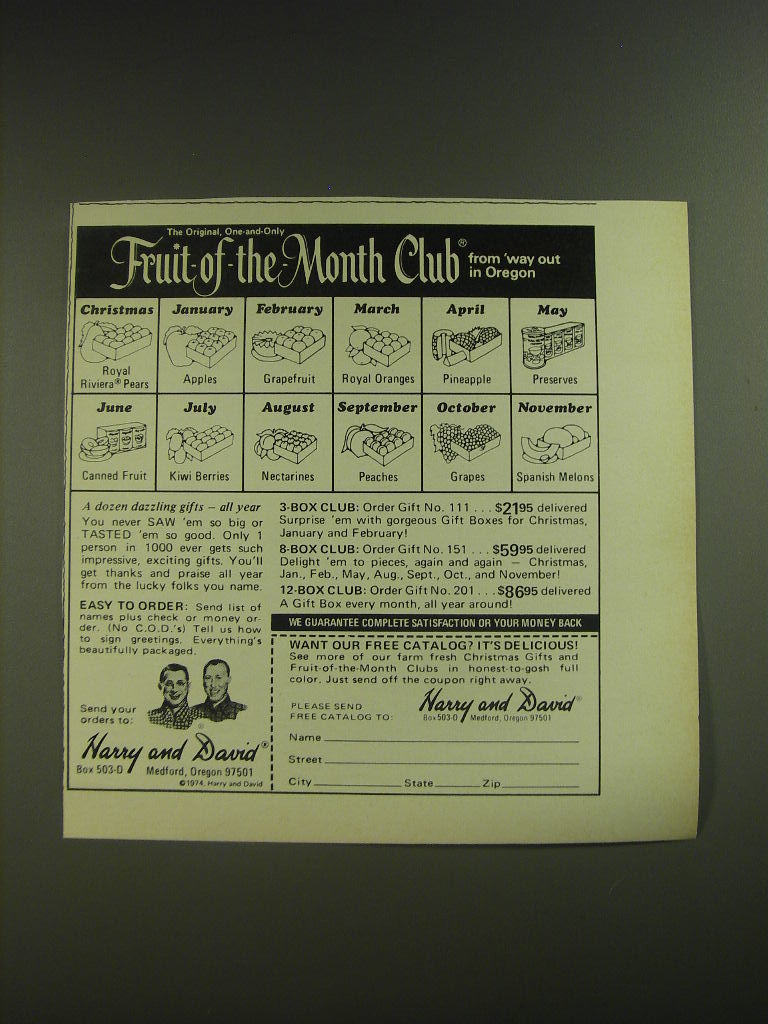 The Original, One-and-Only
Fruit-of-the-Month Club®
from 'way out
in Oregon
Christmas
Royal
Riviera® Pears
January
Apples
February
Grapefruit
March
Royal Oranges
April
Pineapple
May
Preserves
June
Canned Fruit
July
Kiwi Berries
August
Nectarines
September
Peaches
October
Grapes
November
Spanish Melons
A dozen dazzling gifts — all year
You never SAW 'em so big or
TASTED 'em so good. Only 1
person in 1000 ever gets such
impressive, exciting gifts. You'll
get thanks and praise all year
from the lucky folks you name.
EASY TO ORDER: Send list of
names plus check or money or-
der. (No C.O.D.'s) Tell us how
to sign greetings. Everything's
beautifully packaged.
Send your
orders to:
®
Harry and David®
Box 503-D Medford, Oregon 97501
©1974, Harry and David
3-BOX CLUB: Order Gift No. 111 . . . $2195 delivered
Surprise 'em with gorgeous Gift Boxes for Christmas,
January and February!
8-BOX CLUB: Order Gift No. 151 . . . $5995 delivered
Delight 'em to pieces, again and again — Christmas,
Jan., Feb., May, Aug., Sept., Oct., and November!
12-BOX CLUB: Order Gift No. 201 . . . $8695 delivered
A Gift Box every month, all year around!
WE GUARANTEE COMPLETE SATISFACTION OR YOUR MONEY BACK
WANT OUR FREE CATALOG? IT'S DELICIOUS!
See more of our farm fresh Christmas Gifts and
Fruit-of-the-Month Clubs in honest-to-gosh full
color. Just send off the coupon right away.
PLEASE SEND
FREE CATALOG TO:
Harry and David®
Box 503-D Medford, Oregon 97501
Name
Street
City State Zip